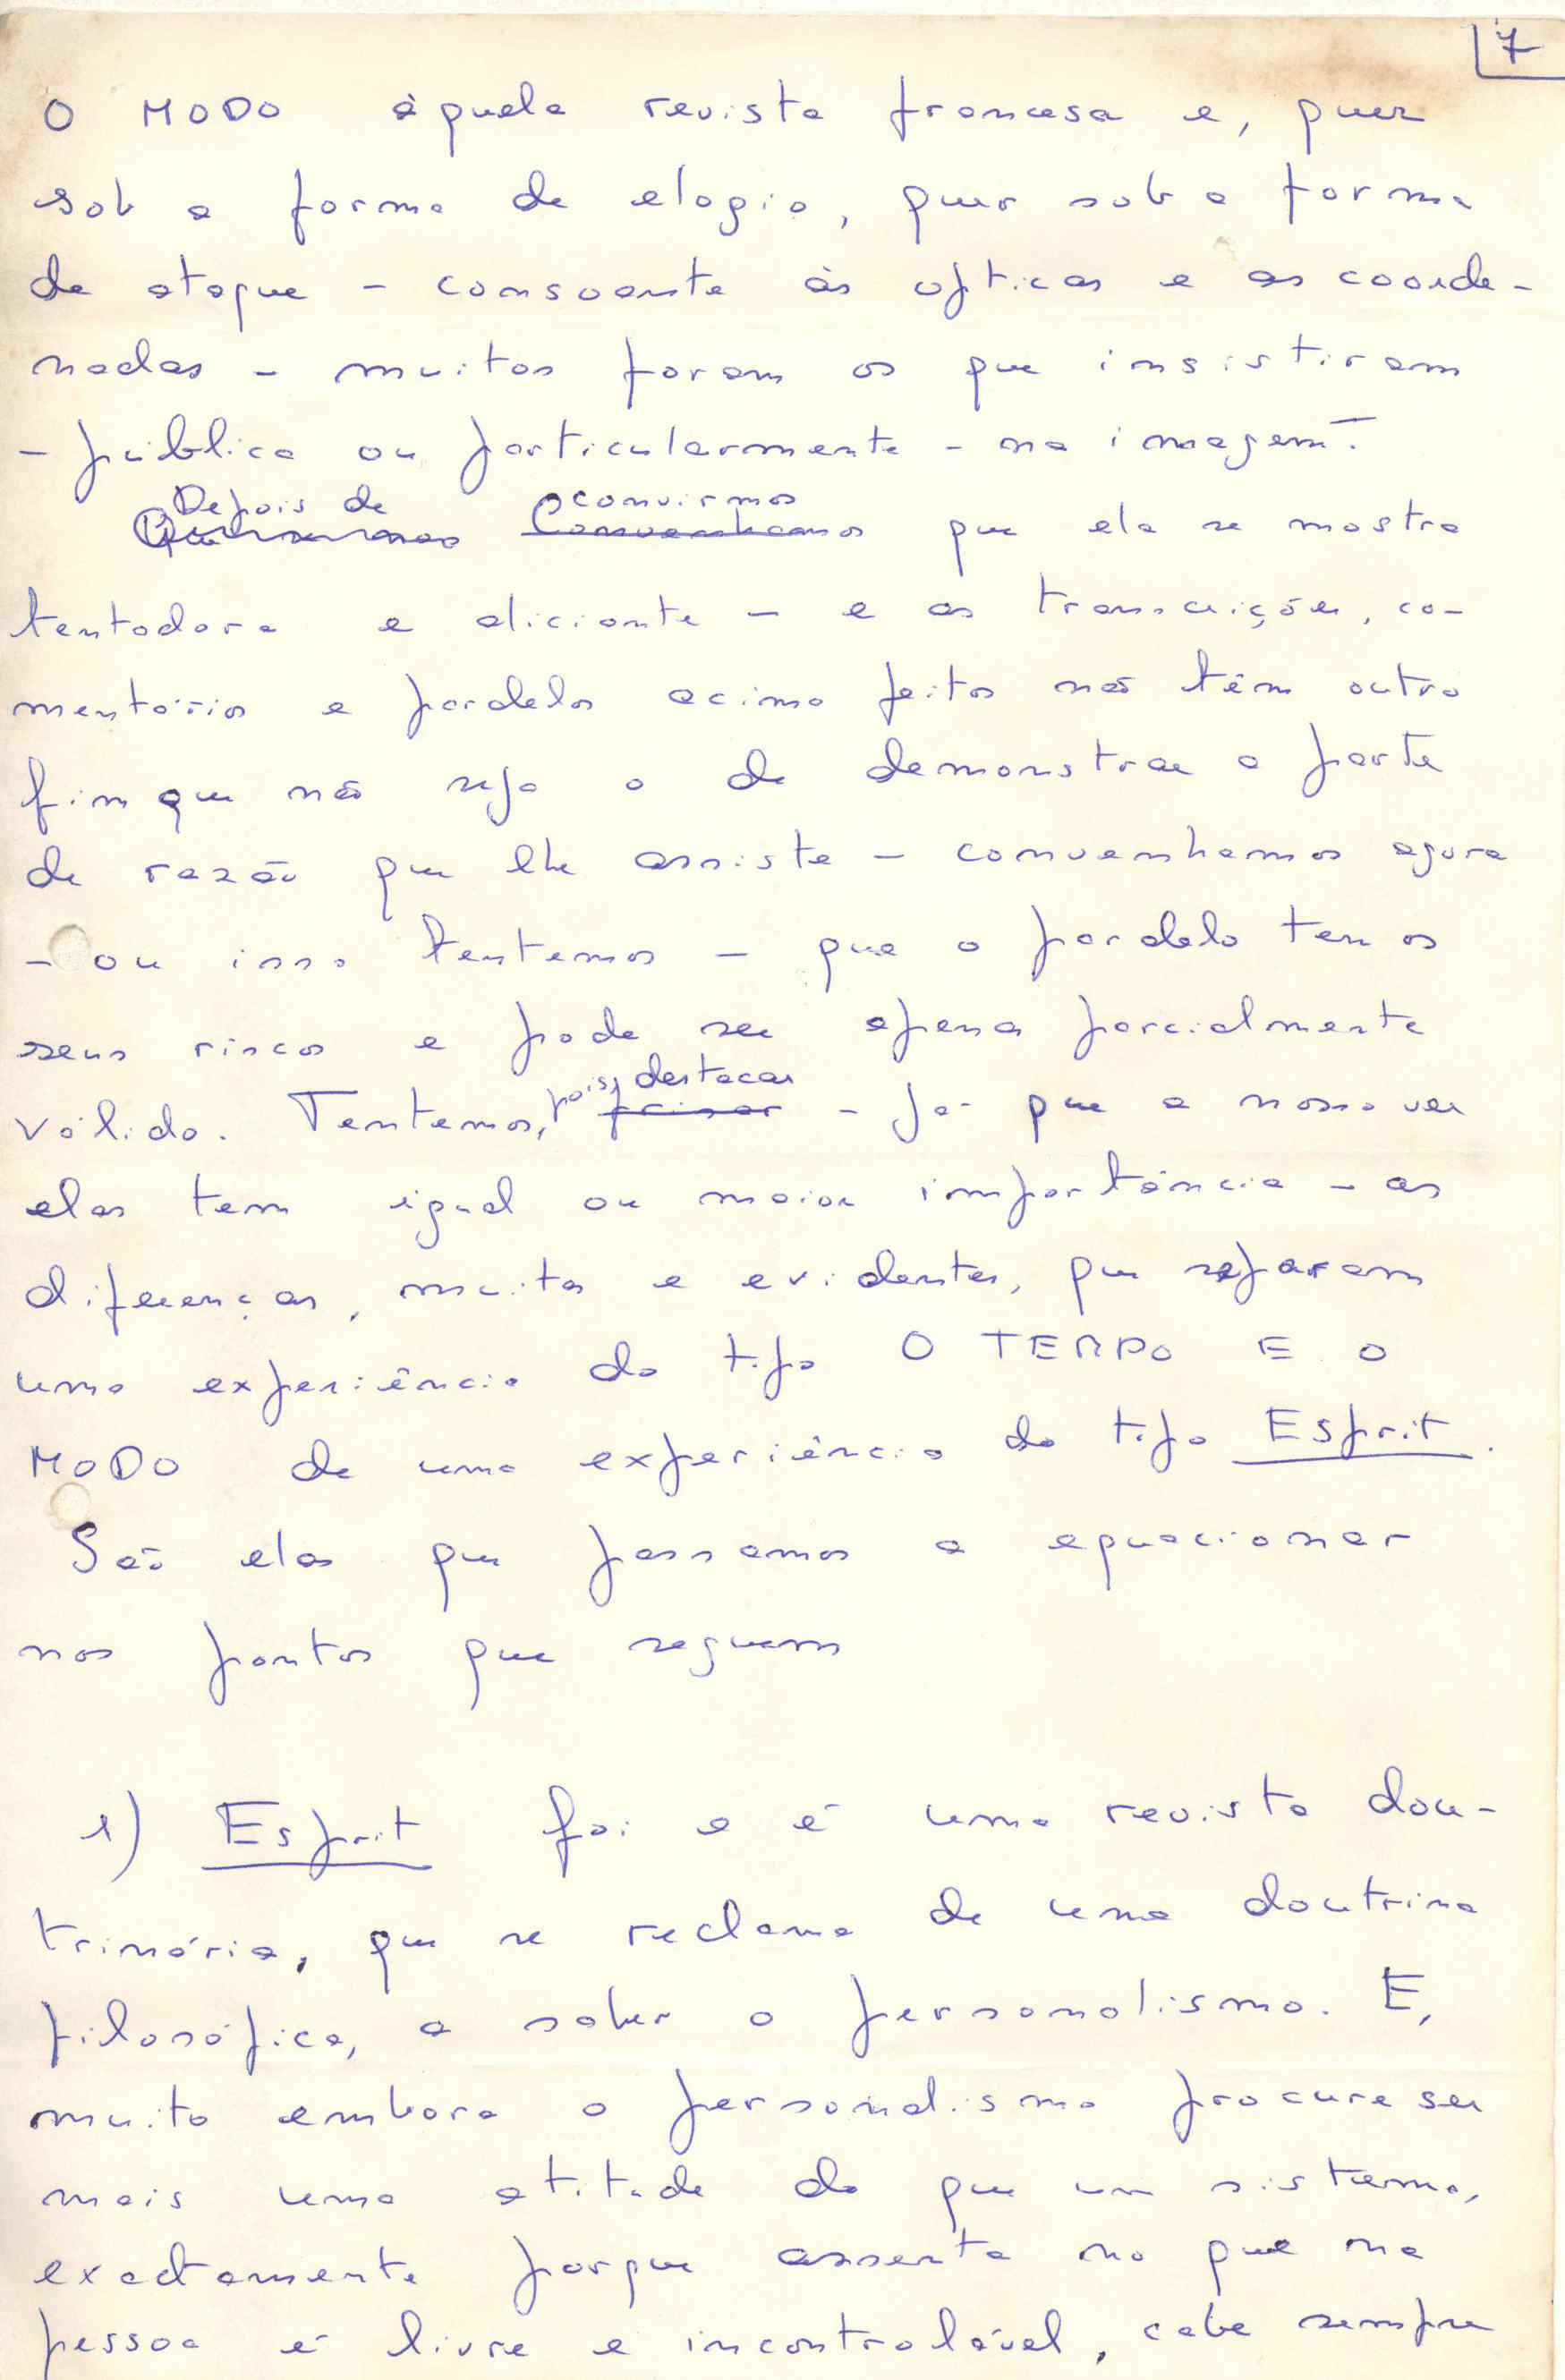 7
O MODO àquela revista francesa e, quer
sob a forma de elogio, quer sob a forma
de ataque – consoante as opticas e as coorde-
nadas – muitos foram os que insistiram
– pública ou particularmente – na imagem.
Depois de convirmos
Convenhamos que ela se mostra
tentadora e aliciante – e as transcrições, co-
mentários e paralelos acima feitos não têm outro
fim que não seja o de demonstrar a parte
de razão que lhe assiste – convenhamos agora
– ou isso tentemos – que o paralelo tem os
seus riscos e pode ser apenas parcialmente
válido. Tentemos, pois, destacar frisar – já que a nosso ver
elas tem igual ou maior importância – as
diferenças, muitas e evidentes, que separam
uma experiência do tipo O TEMPO E O
MODO de uma experiência do tipo Esprit.
São elas que passamos a equacionar
nos pontos que seguem
1) Esprit foi e é uma revista dou-
trinária, que se reclama de uma doutrina
filosófica, a saber o personalismo. E,
muito embora o personalismo procure ser
mais uma atitude do que um sistema,
exactamente porque assenta no que na
pessoa é livre e incontrolável, cabe sempre